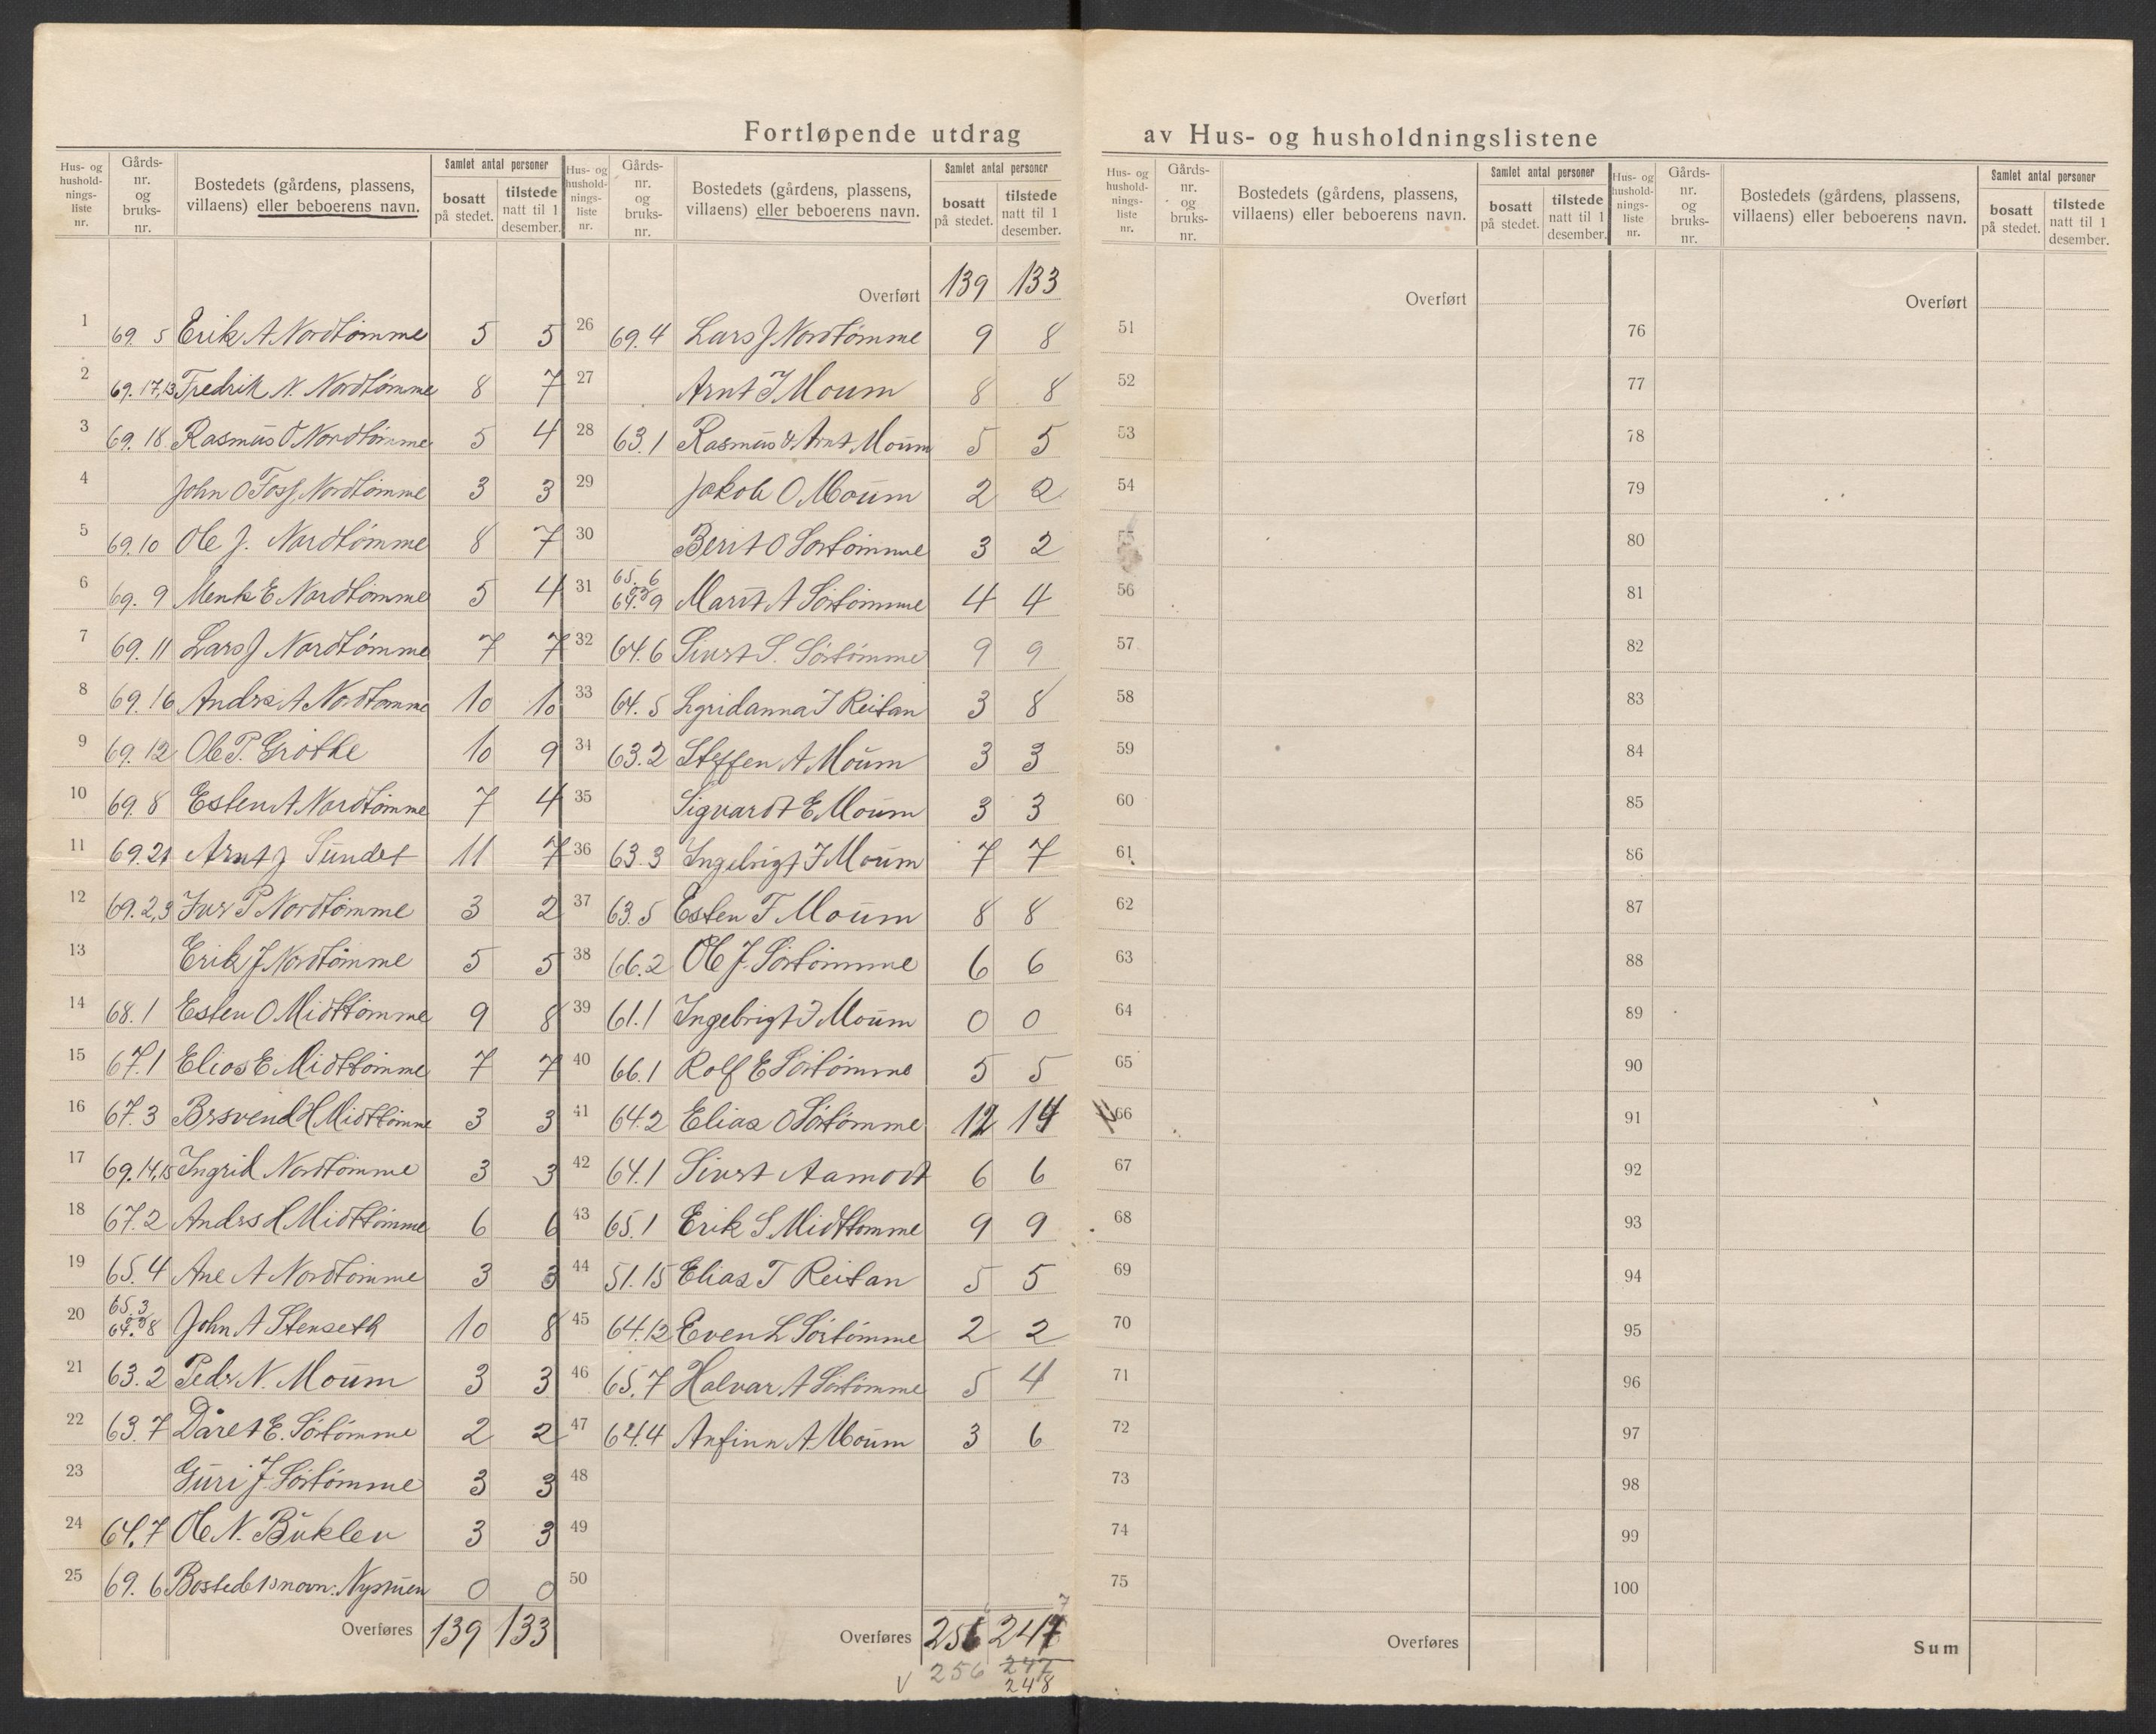 Fortløpende utdrag av Hus- og husholdningslistene
Hus- og husholdningsliste nr. | Gårdsnr. og bruksnr. | Bostedets (gårdens, plassens, villaens) eller beboerens navn. | Samlet antal personer bosatt på stedet. | tilstede natt til 1 desember.
1 69. 5 Erik A Nordtømme 5 5
2 69. 17,13 Fredrik N. Nordtømme 8 7
3 69. 18 Rasmus O Nordtømme 5 4
4 John O Foss, Nordtømme 3 3
5 69. 10 Ole J. Nordtømme 8 7
6 69. 9 Menk E Nordtømme 5 4
7 69. 11 Lars J Nordtømme 7 7
8 69. 16 Andrs A Nordtømme 10 10
9 69. 12 Ole P. Grøtke 10 9
10 69. 8 Esten A Nordtømme 7 4
11 69. 21 Arnt J Sundet 11 7
12 69. 2,3 Ivar P Nordtømme 3 2
13 Erik J Nordtømme 5 5
14 68. 1 Esten O Midttømme 9 8
15 67. 1 Elias E Midttømme 7 7
16 67. 3 Brsvend H Midttømme 3 3
17 69. 14,15 Ingrid Nordtømme 3 3
18 67. 2 Andrs H Midttømme 6 6
19 65. 4 Ane A Nordtømme 3 3
20 65. 3 og 64. 8 John A Stenseth 10 8
21 63. 2 Pedr. N. Moum 3 3
22 63. 7 Dåret E. Sørtømme 2 2
23 Guri J. Sørtømme 3 3
24 64. 7 Ole N. Buklev 3 3
25 69. 6 Bostedets navn: Nystuen 0 0
Overføres 139 133
Hus- og husholdningsliste nr. | Gårdsnr. og bruksnr. | Bostedets (gårdens, plassens, villaens) eller beboerens navn. | Samlet antal personer bosatt på stedet. | tilstede natt til 1 desember.
Overført 139 133
26 69. 4 Lars J Nordtømme 9 8
27 Arnt J Moum 8 8
28 63. 1 Rasmus & Arnt Moum 5 5
29 Jakob O Moum 2 2
30 Berit O Sørtømme 3 2
31 65. 6 og 64. 9 Marit A Sørtømme 4 4
32 64. 6 Sivert S. Sørtømme 9 9
33 64. 5 Ingridanna J Reitan 3 8
34 63. 2 Steffen A Moum 3 3
35 Sigvardt E Moum 3 3
36 63. 3 Ingebrigt J Moum 7 7
37 63. 5 Esten T Moum 8 8
38 66. 2 Ole J. Sørtømme 6 6
39 61. 1 Ingebrigt J Moum 0 0
40 66. 1 Rolf E Sørtømme 5 5
41 64. 2 Elias O Sørtømme 12 14
42 64. 1 Sivert Aamodt 6 6
43 65. 1 Erik S. Midttømme 9 9
44 51. 15 Elias T Reitan 5 5
45 64. 12 Even L Sørtømme 2 2
46 65. 7 Halvar A Sørtømme 5 4
47 64. 4 Anfinn A Moum 3 6
48
49
50
Overføres 256 247
V 256 247
248
Hus- og husholdningsliste nr. | Gårdsnr. og bruksnr. | Bostedets (gårdens, plassens, villaens) eller beboerens navn. | Samlet antal personer bosatt på stedet. | tilstede natt til 1 desember.
Overført
51
52
53
54
55
56
57
58
59
60
61
62
63
64
65
66
67
68
69
70
71
72
73
74
75
Overføres
Hus- og husholdningsliste nr. | Gårdsnr. og bruksnr. | Bostedets (gårdens, plassens, villaens) eller beboerens navn. | Samlet antal personer bosatt på stedet. | tilstede natt til 1 desember.
Overført
76
77
78
79
80
81
82
83
84
85
86
87
88
89
90
91
92
93
94
95
96
97
98
99
100
Sum